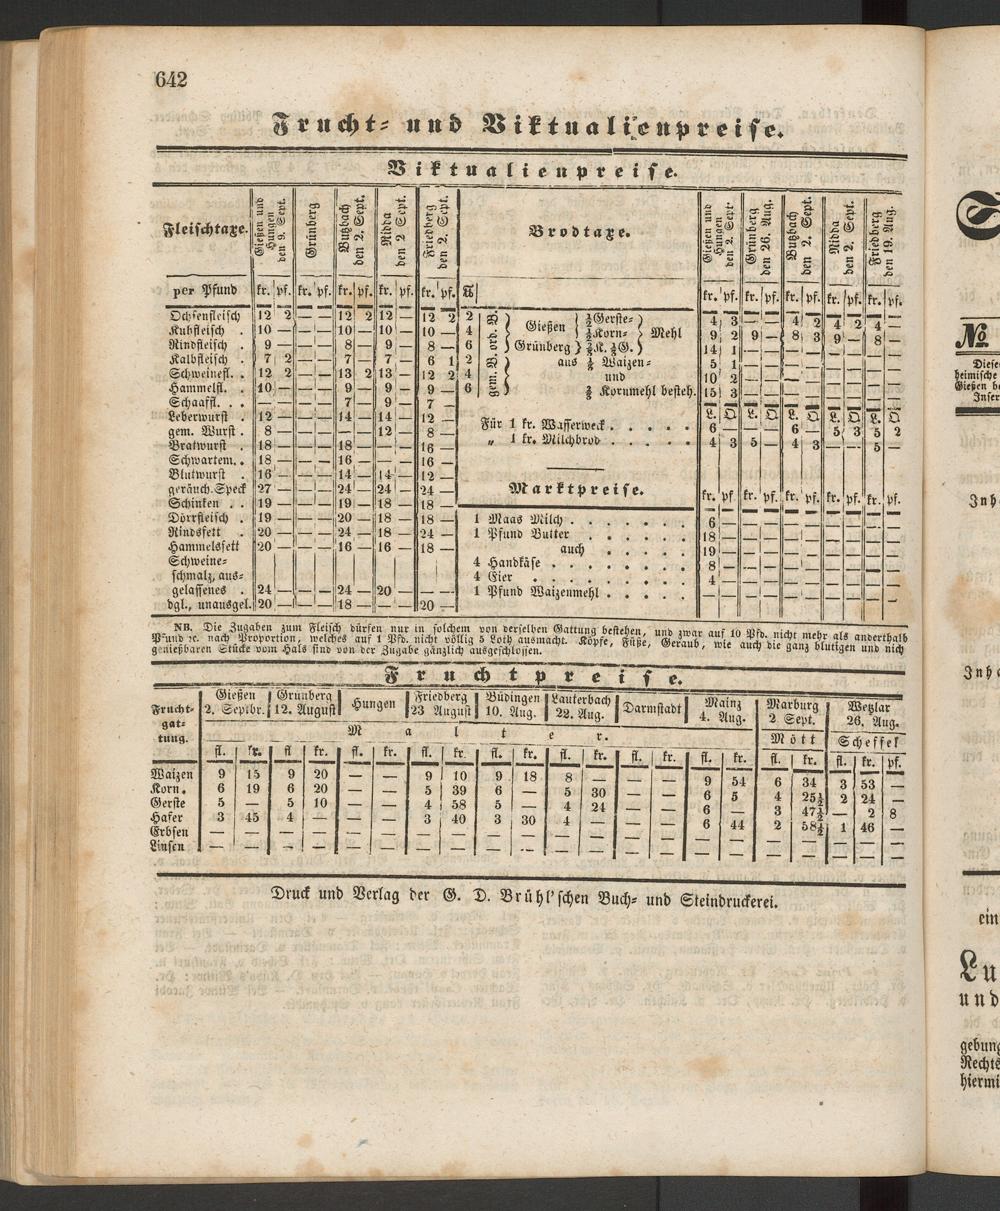 642
Frucht- und Viktualienpreise.
Viktualienpreise.
Fleischtaxe. Gießen und Hungen den 9. Sept. Grünberg Butzbach den 2. Sept. Nidda den 2 Sept. Friedberg den 2. Sept. Brodtaxe. Gießen und Hungen den 2. Sept. Grünberg den 26. Aug. Butzbach den 2. Sept. Nidda den 2. Sept. Friedberg den 19. Aug.
per Pfund kr. pf. kr. pf. kr. pf. kr. pf. kr. pf. ℔ kr. pf. kr. pf. kr. pf. kr. pf. kr. pf.
Ochsenfleisch 12 2 — — 12 2 12 — 12 2 2 gem. B. ord. B. Gießen ½ Gerste- 4 3 — — 4 2 4 2 4 —
Kuhfleisch . 10 — — — 10 — 10 — 10 — 4 ½ Korn- Mehl 9 2 9 — 8 3 9 — 8 —
Rindfleisch . 9 — — — 8 — 9 — 8 — 6 Grünberg ⅔ K. ⅓ G. 14 1 — — — — — — — —
Kalbfleisch . 7 2 — — 7 — 7 — 6 1 2 aus ⅓ Waizen- 5 1 — — — — — — — —
Schweinefl. . 12 2 — — 13 2 13 — 12 2 4 und 10 2 — — — — — — — —
Hammelfl. . 10 — — — 9 — 9 — 9 — 6 ⅔ Kornmehl besteh. 15 3 — — — — — — — —
Schaaffl. . . 7 — 9 — 7
Leberwurst . 12 — — — 14 — 14 — 12 — L. Q. L. Q. L. Q. L. Q. L. Q.
gem. Wurst . 8 — — — 12 — 8 — Für 1 kr. Wasserweck . . . . . 6 — — — 6 — 5 3 5 2
Bratwurst . 18 — — — 18 — 16 — „ 1 kr. Milchbrod . . . . . 4 3 5 — 4 3 — — 5 —
Schwartem. . 18 — — — 16 — — — 16 —
Blutwurst . 16 — — — 14 — 14 — 12 —
geräuch. Speck 27 — — — 24 — 24 — 24 — Marktpreise. kr. pf. kr. pf. kr. pf. kr. pf. kr. pf.
Schinken . . 19 — — — 19 — 18 — 18 —
Dörrfleisch . 19 — — — 20 — 18 — 18 — 1 Maas Milch . . . . . . . 6 — — — — — — — — —
Rindsfett . 20 — — — 24 — 18 — 24 — 1 Pfund Butter . . . . . . 18 — — — — — — — — —
Hammelsfett 20 — — — 16 — 16 — 18 — auch . . . . . 19 — — — — — — — — —
Schweine- 4 Handkäse . . . . . . . 8 — — — — — — — — —
schmalz, aus- 4 Eier . . . . . . . . 4 — — — — — — — — —
gelassenes . 24 — — — 24 — 20 — — — 1 Pfund Waizenmehl . . . . . — — — — — — — — — —
dgl., unausgel. 20 — — — 18 — — — 20 —
NB. Die Zugaben zum Fleisch dürfen nur in solchem von derselben Gattung bestehen, und zwar auf 10 Pfd. nicht mehr als anderthalb
Pfund ꝛc. nach Proportion, welches auf 1 Pfd. nicht völlig 5 Loth ausmacht. Köpfe, Füße, Geraub, wie auch die ganz blutigen und nich
genießbaren Stücke vom Hals sind von der Zugabe gänzlich ausgeschlossen.
Fruchtpreise.
Frucht-gat-tung. Gießen 2. Septbr. Grünberg 12. August Hungen Friedberg 23 August Büdingen 10. Aug. Lauterbach 22. Aug. Darmstadt Mainz 4. Aug. Marburg 2 Sept. Wetzlar 26. Aug.
Malter. Mött Scheffel
fl. kr. fl kr. fl. kr. fl. kr. fl. kr. fl. kr. fl. kr. fl. kr. fl. kr. fl. kr. pf.
Waizen 9 15 9 20 — — 9 10 9 18 8 — — — 9 54 6 34 3 53 —
Korn . 6 19 6 20 — — 5 39 6 — 5 30 — — 6 5 4 25½ 2 24 —
Gerste 5 — 5 10 — — 4 58 5 — 4 24 — — 6 — 3 47½ — 2 8
Hafer 3 45 4 — — — 3 40 3 30 4 — — — 6 44 2 58½ 1 46 —
Erbsen — — — — — — — — — — — — — — — — — — — — —
Linsen — — — — — — — — — — — — — — — — — — — — —
Druck und Verlag der G. D. Brühl'schen Buch- und Steindruckerei.
№
Diese
heimische
Gießen be
Inser
Inh
Inh
ein
Lu
und
gebung
Rechts
hiermi